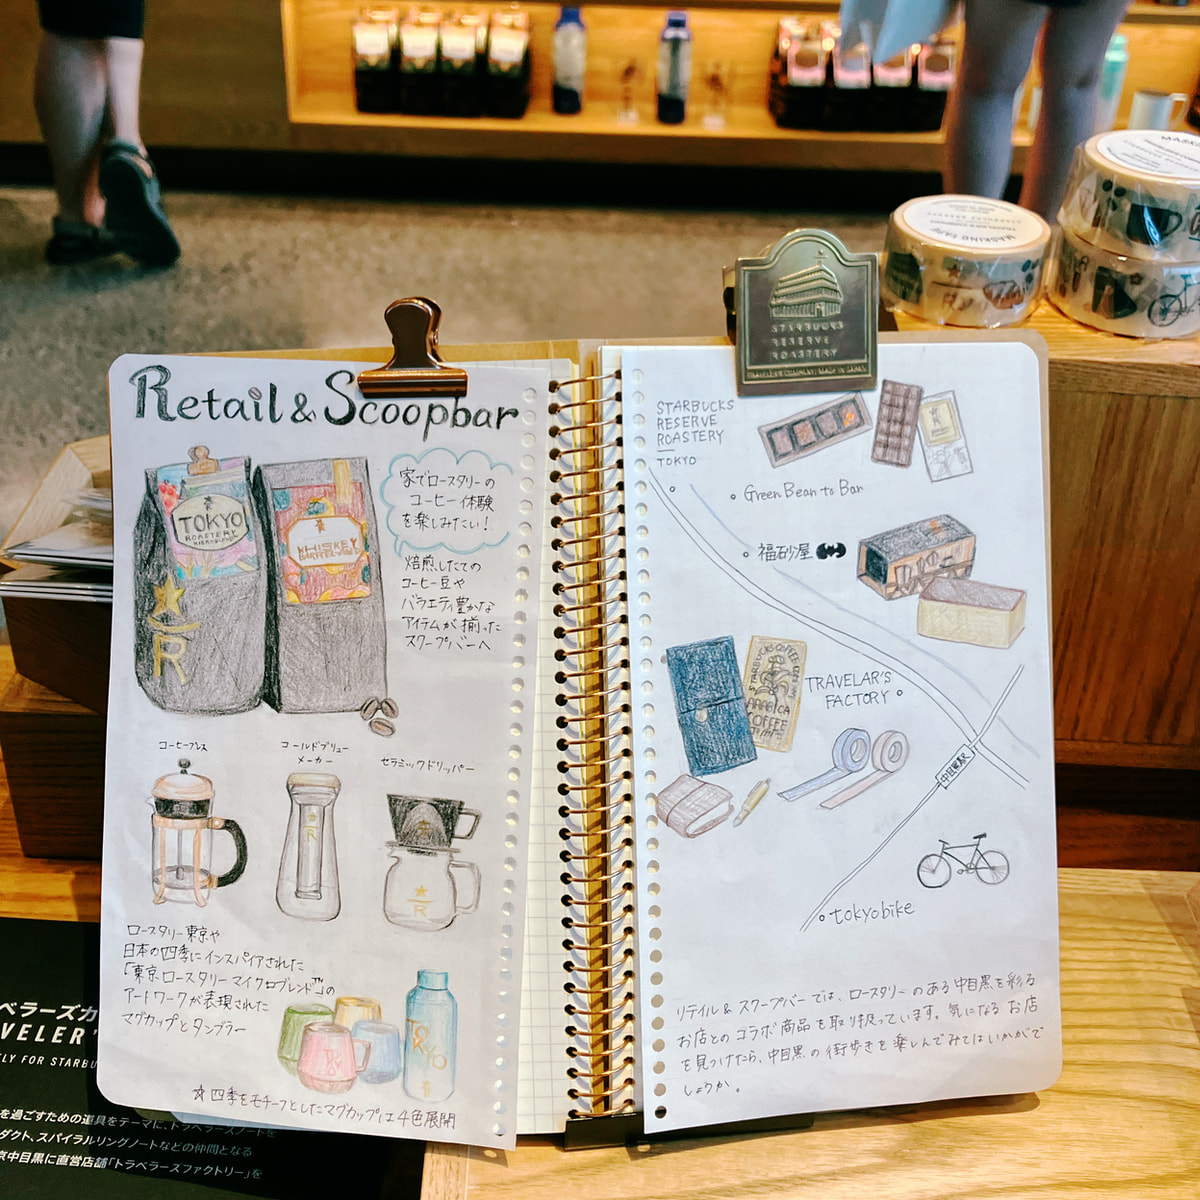 Retail & Scoopbar
TOKYO
ROASTERY
WHISKEY
BARREL
R
家でロースタリーの
コーヒー体験
を楽しみたい!
焙煎したての
コーヒー豆や
バラエティ豊かな
アイテムが揃った
スクープバーへ
コーヒープレス
コールドブリュー
メーカー
セラミックドリッパー
R
R
ロースタリー東京や
日本の四季にインスパイアされた
「東京ロースタリーマイクロブレンド™」の
アートワークが表現された
マグカップとタンブラー
TOKYO
☆四季をモチーフとしたマグカップは4色展開
STARBUCKS
RESERVE
ROASTERY
TRAVELER'S COMPANY, MADE IN JAPAN
STARBUCKS
RESERVE
ROASTERY
TOKYO
Green Bean to Bar
福砂屋
STARBUCKS COFFEE
ARABICA
COFFEE
TRAVELAR'S
FACTORY
中目黒駅
tokyobike
リテイル&スクープバーでは、ロースタリーのある中目黒を彩る
お店とのコラボ商品を取り扱っています。気になるお店
を見つけたら、中目黒の街歩きを楽しんでみてはいかがで
しょうか。
MASKING TAPE
ベラーズカ
VELER'
LY FOR STARBU
を過ごすための道具をテーマに、トラベラーズノートを
ダクト、スパイラルリングノートなどの仲間となる
京中目黒に直営店舗「トラベラーズファクトリー」を